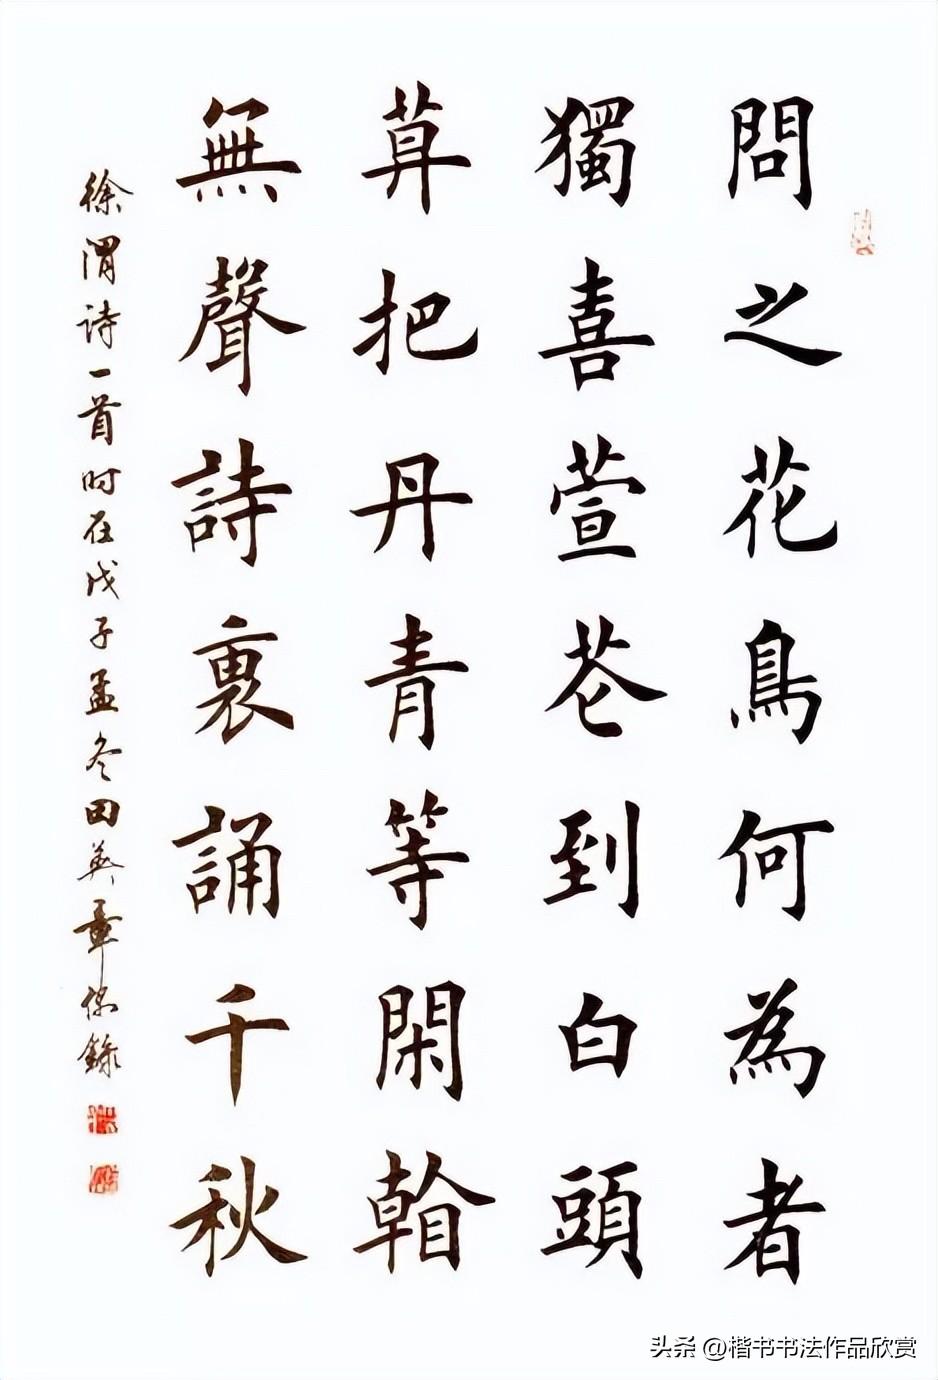 問之花鳥何為者
獨喜萱花到白頭
莫把丹青等閑看
無聲詩裏誦千秋
徐渭诗一首时在戊子孟冬田英章錄
头条 @楷书书法作品欣赏